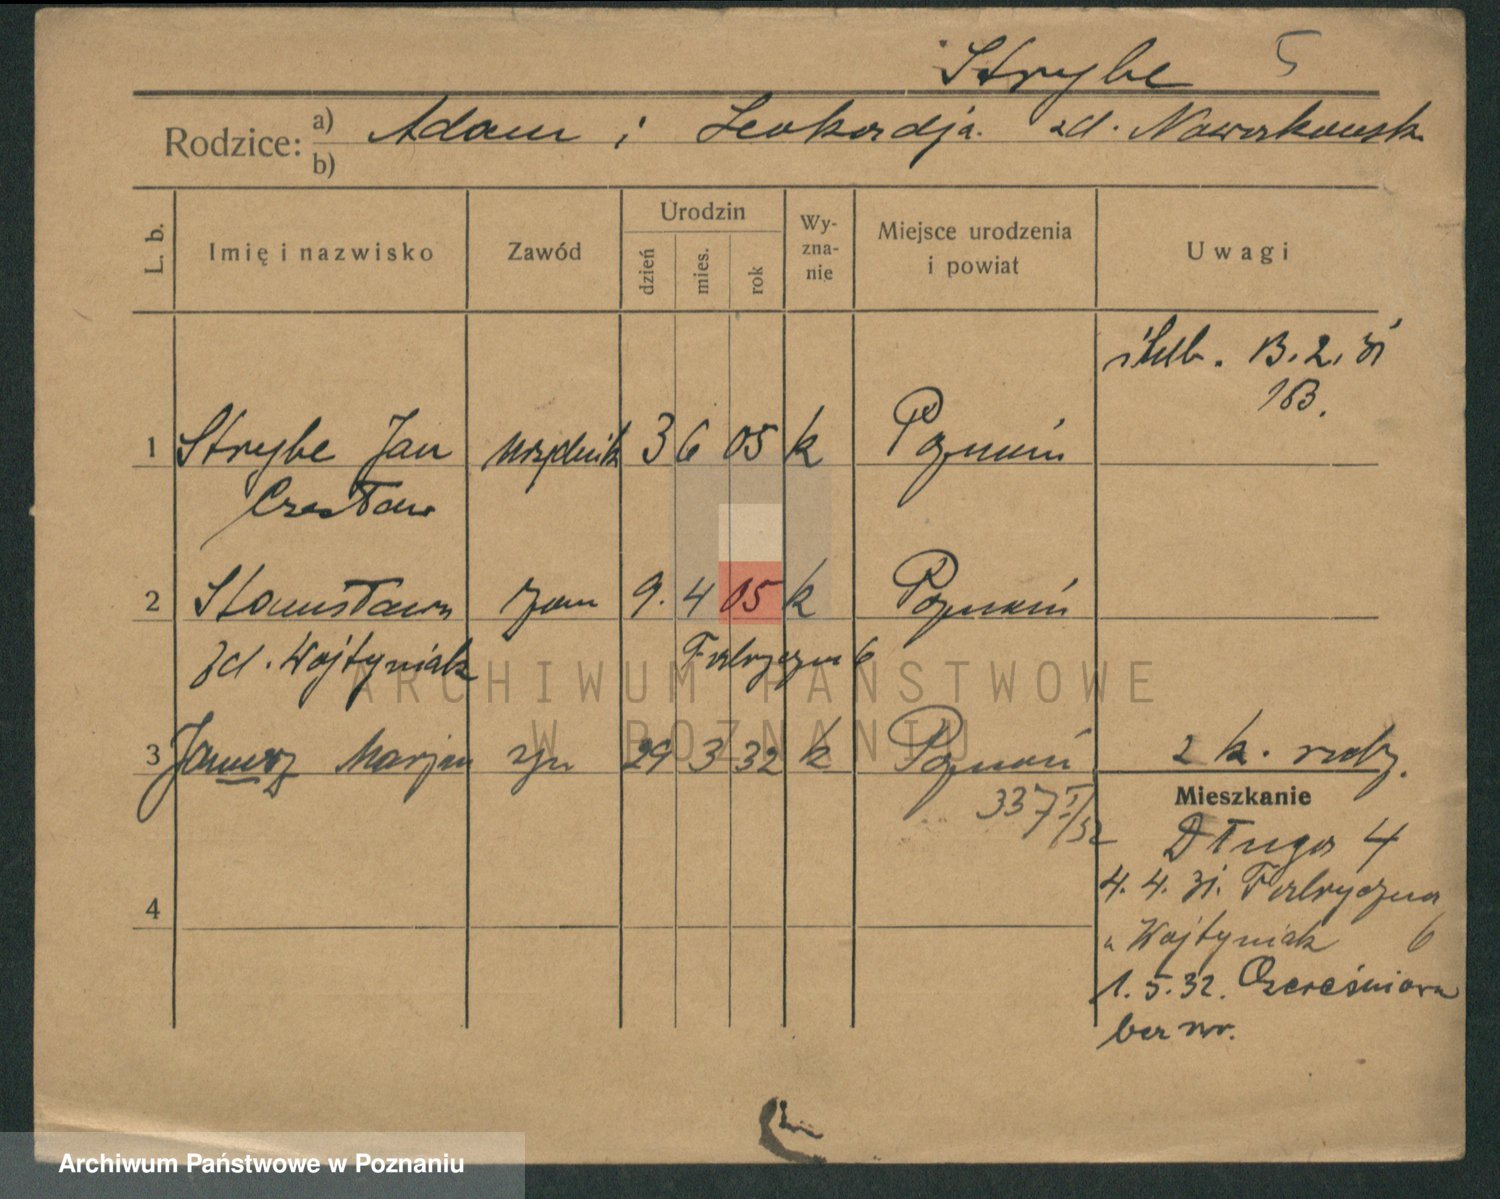 Strybe 5
Rodzice: a) Adam i Leokardja zd. Nowakowsk
b)
L. b. Imię i nazwisko Zawód Urodzin dzień mies. rok Wy-zna-nie Miejsce urodzenia i powiat Uwagi
ślub. 13.2.31
1 Strybe Jan urzędnik 3 6 05 k Poznań
Czesław
2 Stanisława żona 9. 4 05 k Poznań
zd. Wojtyniak Fabryczna 6
3 Janusz Marjan syn 29 3 32 k Poznań 2 k.
337 I/32
Mieszkanie
Długa 4
4. 4. 31. Fabryczna
u Wojtyniak 6
4
1. 5. 32. Czereśniowa
bez nr.
ARCHIWUM PAŃSTWOWE
W POZNANIU
Archiwum Państwowe w Poznaniu